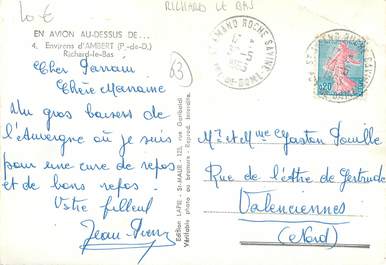 10€
RICHARD LE BAS
EN AVION AU-DESSUS DE...
4. Environs d'AMBERT (P.-de-D.)
Richard-le-Bas
63
Cher Parrain
Chère Marraine
Un gros baisers de
l'Auvergne où je suis
pour une cure de repos
et de bons repos.
Votre filleul
Edition LAPIE - St-MAUR - 125, rue Garibaldi
Véritable photo au bromure - Reprod. Interdite.
0,20
Mr et Mme Gaston Pouille
Rue de l'Atre de Gertrude
Valenciennes
(Nord)